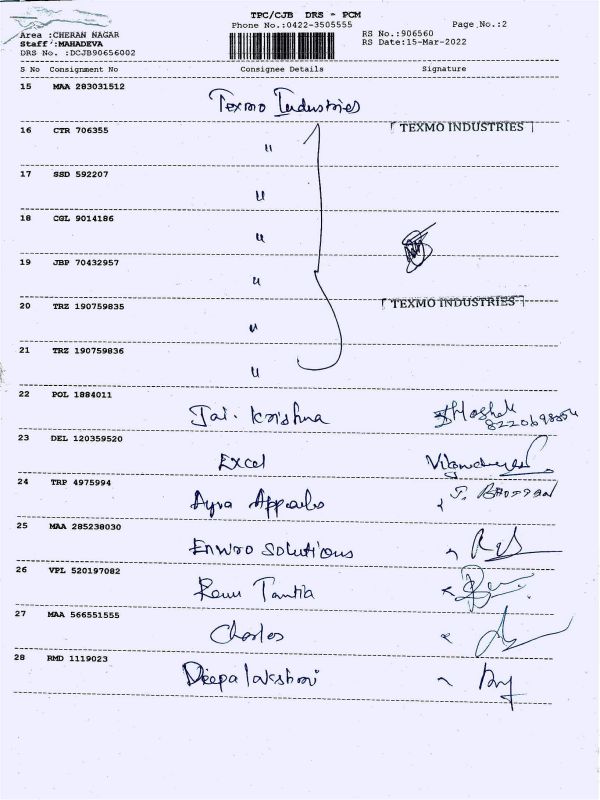 TPC/CJB DRS - PCM
Phone No.:0422-3505555 Page No.:2
Area :CHERAN NAGAR RS No.:906560
Staff :MAHADEVA RS Date:15-Mar-2022
DRS No. :DCJB90656002
S No Consignment No Consignee Details Signature
15 MAA 283031512 Texmo Industries
16 CTR 706355 " TEXMO INDUSTRIES
17 SSD 592207 "
18 CGL 9014186 "
19 JBP 70432957 "
20 TRZ 190759835 " TEXMO INDUSTRIES
21 TRZ 190759836 "
22 POL 1884011 Jai. Krishna
23 DEL 120359520 Excel
24 TRP 4975994 Ayra
25 MAA 285238030 Enviro Solutions
26 VPL 520197082
27 MAA 566551555 Charles
28 RMD 1119023 Deepa lakshmi